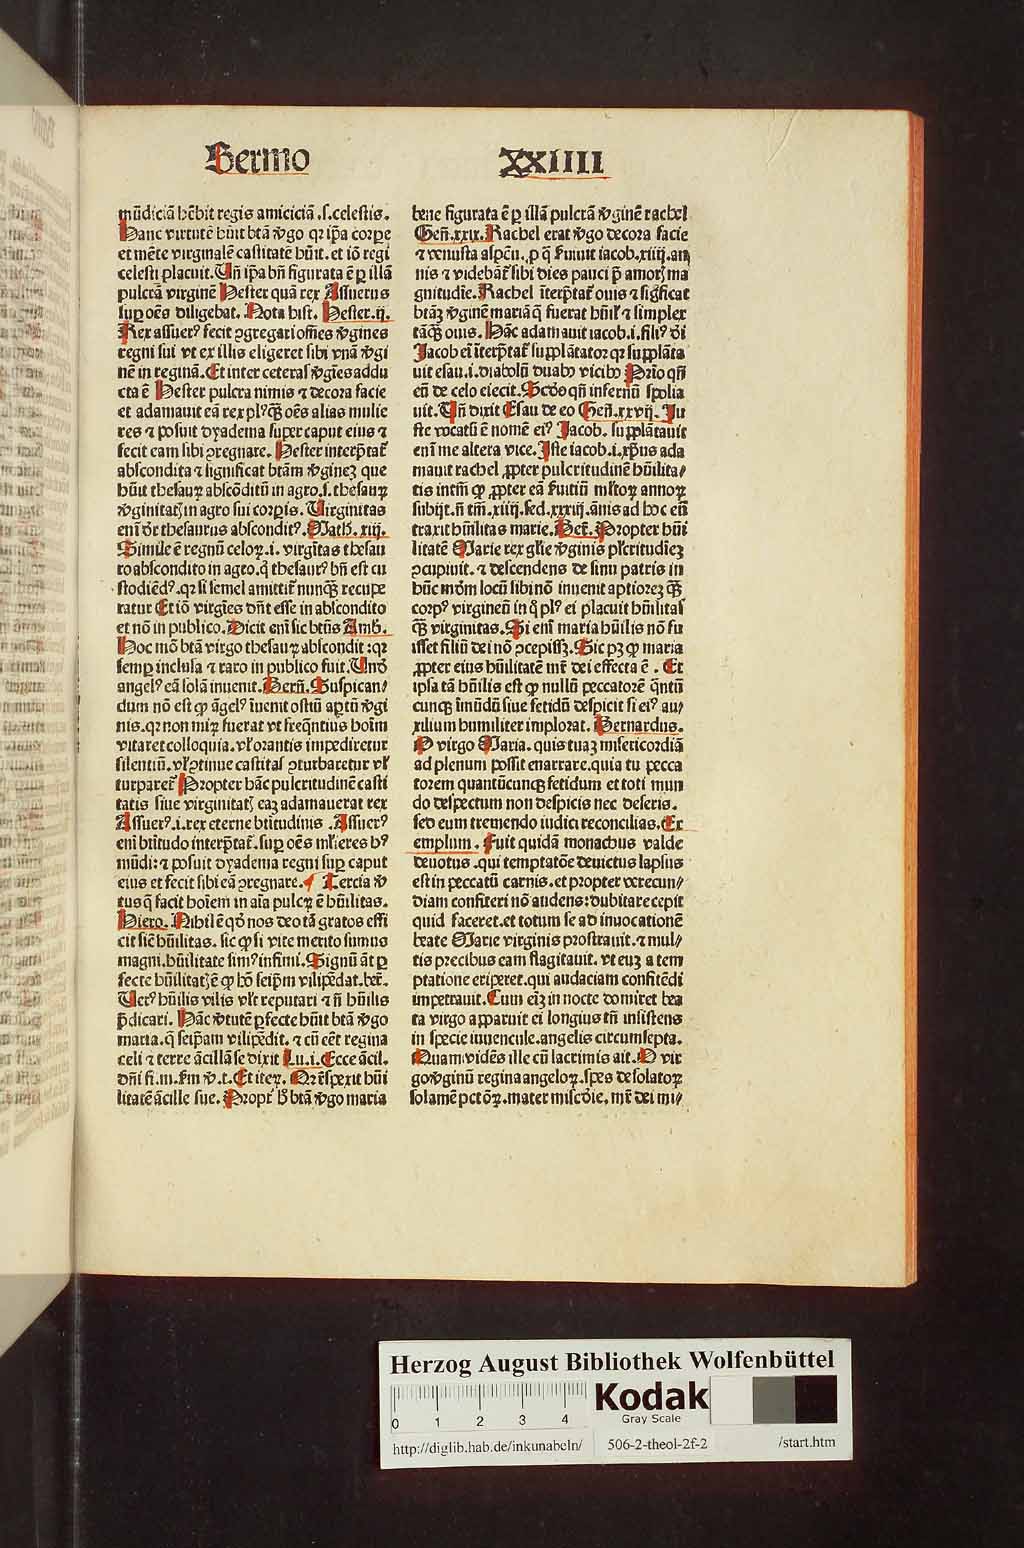 Sermo XXIIII
mūdiciā hēbit regis amiciciā .s. celestis.
Hanc virtutē hūit btā v̄go qr ip̄a corpe
et mēte virginalē castitatē hūit. et iō regi
celesti placuit. Un̄ ip̄a bn̄ figurata ē ꝑ illā
pulcrā virginē Hester quā rex Assuerus
suꝑ oēs diligebat. Nota hist. Hester .ij.
Rex assuerꝰ fecit ꝯgregari oīnes v̄gines
regni sui vt ex illis eligeret sibi vnā v̄gi
nē in reginā. Et inter ceteras v̄gīes addu
cta ē Hester pulcra nimis ⁊ decora facie
et adamauit eā rex plꝰqȝ̄ oēs alias mulie
res ⁊ posuit dyadema super caput eius ⁊
fecit eam sibi ꝯregnare. Hester interp̄tat̄
abscondita ⁊ significat btām v̄ginez que
hūit thesauꝝ abscōditū in agro .s. thesauꝝ
v̄ginitatꝭ in agro sui corꝑis. Virginitas
enī dr̄ thesaurus absconditꝰ. Math. xiij.
Simile ē regnū celoꝝ .i. virgītas thesau
ro abscondito in agro. q̄ thesaurꝰ bn̄ est cu
stodiēdꝰ. qr si semel amittit̄ nunqȝ̄ recupe
ratur Et iō virgīes dn̄t esse in abscondito
et nō in publico. Dicit enī sic btūs Amb.
Hoc mō btā virgo thesauꝝ abscondit: qr
semꝑ inclusa ⁊ raro in publico fuit. Unō
angelꝰ eā solā inuenit. Bern̄. Suspican⸗
dum nō est ꝙ āgelꝰ īuenit ostiū aꝑtū v̄gi
nis. qr non miꝝ fuerat vt freq̄ntius hoīm
vitaret colloquia. vl̄ orantis impediretur
silentiū. vl̄ ꝯtinue castitas ꝯturbaretur vl̄
turparet̄ Propter hāc pulcritudinē casti
tatis siue virginitatꝭ eaꝫ adamauerat rex
Assuerꝰ .i. rex eterne btītudinis. Assuerꝰ
enī btītudo interp̄tat̄. suꝑ oēs ml̄ieres hꝰ
mūdi: ⁊ posuit dyadema regni suꝑ caput
eius et fecit sibi eā ꝯregnare. Tercia v̄
tus q̄ facit hoīem in aīa pulcꝝ ē hūilitas.
Hiero. Nihil ē qd̄ nos deo tā gratos effi
cit siē hūilitas. sic ꝙ si vite merito sumus
magni. hūilitate simꝰ infimi. Signū āt ꝑ
fecte hūilitatꝭ ē ꝙ hō seip̄m vilipēdat. ber̄.
Verꝰ hūilis vilis vl̄t reputari ⁊ n̄ hūilis
p̄dicari. Hāc v̄tutē ꝑfecte hūit btā v̄go
maria. q̄ seip̄am vilipēdit. ⁊ cū eēt regina
celi ⁊ terre ācillā se dixit Lu. i. Ecce ācil.
dn̄i fi. m. ẜm v̄. t. Et iteꝝ. Qr ēspexit hūi
litatē ācille sue. Propt̄ h̄ btā v̄go maria
bene figurata ē ꝑ illā pulcrā v̄ginē rachel
Gen̄. xxix. Rachel erat v̄go decora facie
⁊ venusta aspcū. ꝓ q̄ ẜuiuit iacob .xiiij. an
nis ⁊ videbāt̄ sibi dies pauci p̄ amorꝭ ma
gnitudīe. Rachel īterp̄tat̄ ouis ⁊ sigficat
btāꝫ v̄ginē mariā q̄ fuerat hūil̄ ⁊ simplex
tāqȝ̄ ouis. Hāc adamauit iacob .i. filiꝰ d̄i
Jacob ei īterp̄tat̄ supplātator qr supplāta
uit esau .i. diabolū duabꝰ vicibꝰ Prīo qn̄
eū de celo eiecit. Scd̄o qn̄ infernū spolia
uit. Un̄ dixit Esau de eo Gen̄. xxvij. Ju
ste vocatū ē nomē eiꝰ Jacob. supplātauit
enī me altera vice. Iste iacob .i. xp̄us ada
mauit rachel ꝓpter pulcritudinē hūilita⸗
tis intm̄ ꝙ ꝓpter eā ẜuitiū ml̄toꝝ annoꝝ
subijt. n̄ tm̄ .xiiij. sed .xxxiij. ānis ad hoc eū
traxit hūilitas marie. Ber̄. Propter hūi
litatē Marie rex gl̄ie v̄ginis pl̄critudīeꝫ
ꝯcupiuit. ⁊ descendens de sinu patris in
hūc mōm locū sibi nō inuenit aptiorez qȝ̄
corpꝰ virgineū in q̄ plꝰ ei placuit hūilitas
qȝ̄ virginitas. Si enī maria hūilis nō fu
isset filiū dei nō ꝯcepissꝫ. Sic pꝫ ꝙ maria
ꝓpter eius hūilitatē mr̄ dei effecta ē. Et
ipsa tā hūilis est ꝙ nullū peccatorē q̄ntū
cunqȝ īmūdū siue fetidū despicit si eiꝰ au⸗
xilium humiliter implorat. Bernardus.
O virgo Maria. quis tuaꝫ misericordiā
ad plenum possit enarrare. quia tu pecca
torem quantūcunqȝ fetidum et toti mun
do despectum non despicis nec deseris.
sed eum tremendo iudici reconcilias. Ex
emplum. Fuit quidā monachus valde
deuotus. qui temptatōe deuictus lapsus
est in peccatū carnis. et propter verecun⸗
diam confiteri nō audens: dubitare cepit
quid faceret. et totum se ad inuocationē
beate Marie virginis prostrauit. ⁊ mul⸗
tis precibus eam flagitauit. vt euꝫ a tem
ptatione eriperet. qui audaciam confitēdi
impetrauit. Cum eīꝫ in nocte domiret bea
ta virgo apparuit ei longius tn̄ insistens
in specie iuuencule. angelis circumsepta.
Quam vidēs ille cū lacrimis ait. O vir
go v̄ginū regina angeloꝝ. spes desolatoꝝ
solamē pctōꝝ. mater misc̄die. mr̄ dei mi⸗
Herzog August Bibliothek Wolfenbüttel
0 1 2 3 4
Kodak
Gray Scale
http://diglib.hab.de/inkunabeln/ 506-2-theol-2f-2 /start.htm